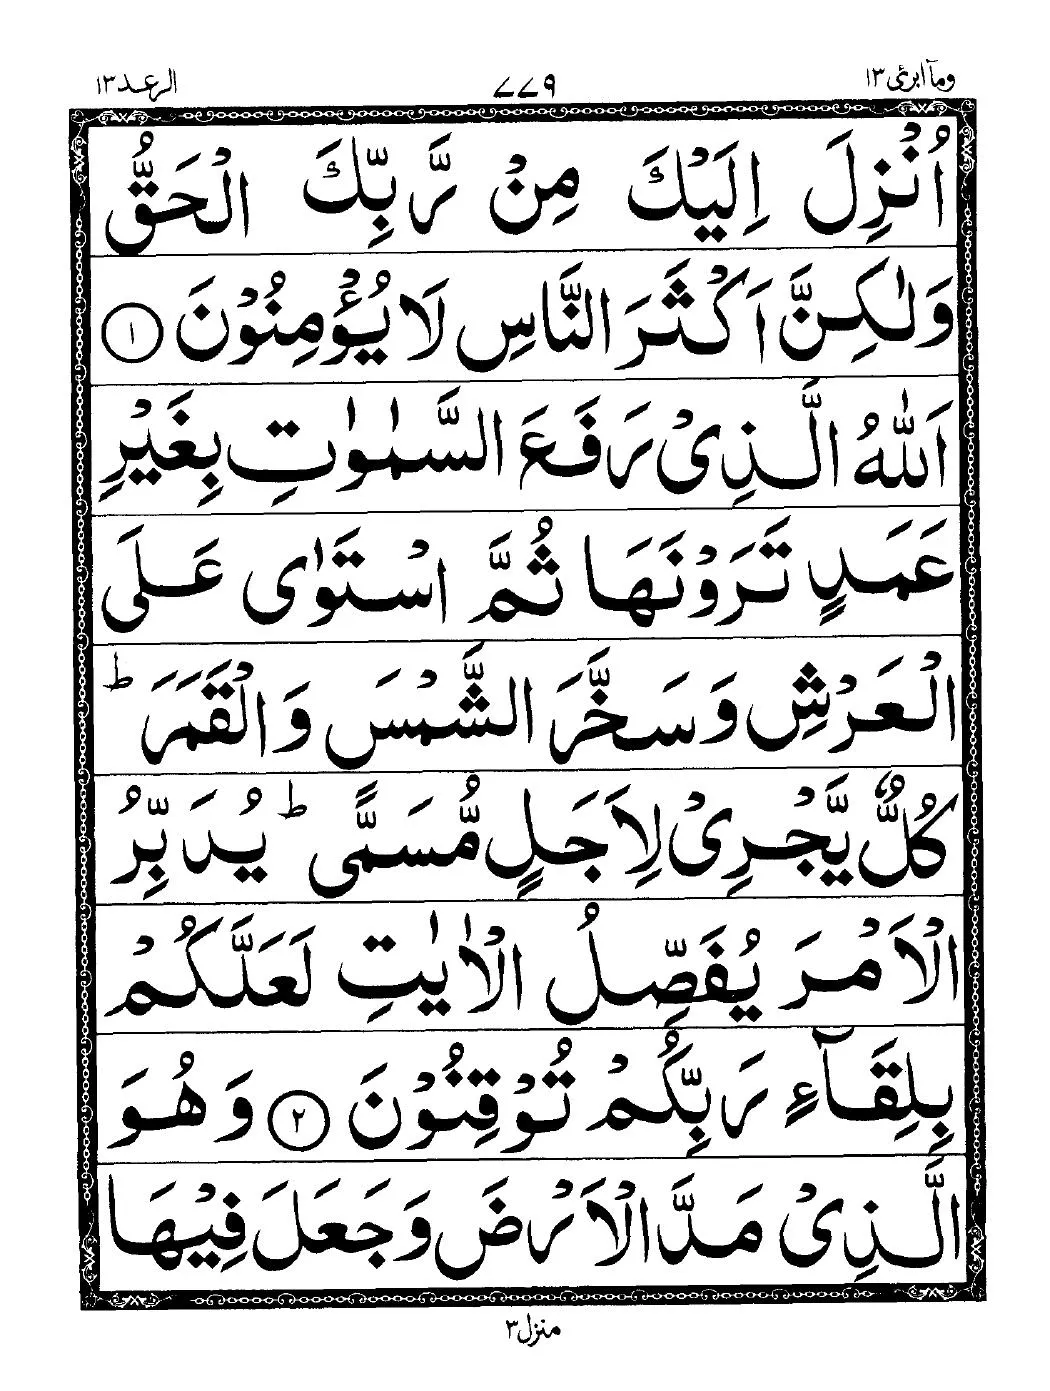 ومآ ابرئ ١٣ ٧٧٩ الرعد ١٣
اُنْزِلَ اِلَيْكَ مِنْ رَّبِّكَ الْحَقُّ
وَلٰكِنَّ اَكْثَرَ النَّاسِ لَا يُؤْمِنُوْنَ ١
اَللّٰهُ الَّذِيْ رَفَعَ السَّمٰوٰتِ بِغَيْرِ
عَمَدٍ تَرَوْنَهَا ثُمَّ اسْتَوٰى عَلَى
الْعَرْشِ وَسَخَّرَ الشَّمْسَ وَالْقَمَرَ ؕ
كُلٌّ يَّجْرِيْ لِاَجَلٍ مُّسَمًّى ؕ يُدَبِّرُ
الْاَمْرَ يُفَصِّلُ الْاٰيٰتِ لَعَلَّكُمْ
بِلِقَآءِ رَبِّكُمْ تُوْقِنُوْنَ ٢ وَهُوَ
الَّذِيْ مَدَّ الْاَرْضَ وَجَعَلَ فِيْهَا
منزل ٣